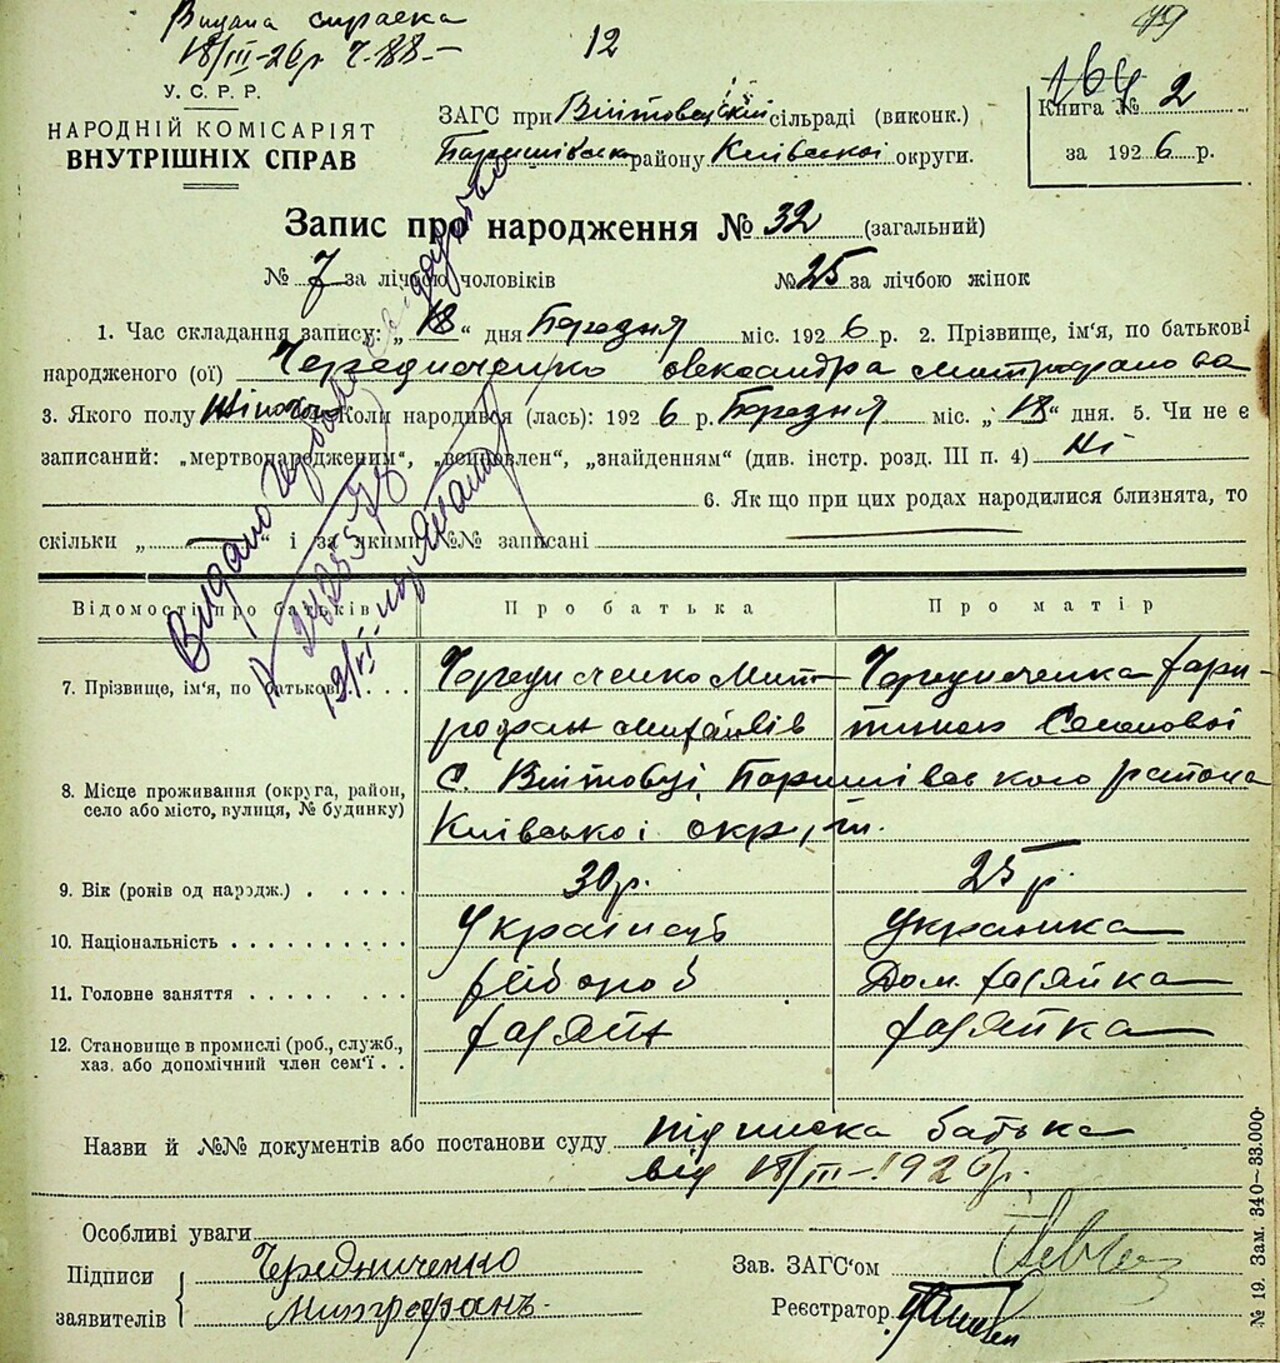 Видана справка
18/III-26р Ч.88.-
12
У.С.Р.Р.
НАРОДНІЙ КОМІСАРІЯТ
ВНУТРІШНІХ СПРАВ
ЗАГС при Війтовецькій сільраді (виконк.)
Баришівськ району Київської округи.
164
Книга № 2
за 1926 р.
Запис про народження № 32 (загальний)
№ 7 за лічбою чоловіків № 25 за лічбою жінок
1. Час складання запису: „18“ дня Березня міс. 1926 р. 2. Прізвище, ім'я, по батькові
народженого (ої) Чередниченко Олександра Митрофанова
3. Якого полу Жіночого Коли народився (лась): 1926 р. Березня міс. „18“ дня. 5. Чи не є
записаний: „мертвонародженим“, „всиновлен“, „знайденням“ (див. інстр. розд. III п. 4) Ні
6. Як що при цих родах народилися близнята, то
скільки „ — “ і за якими №№ записані —
Видано
Відомості про батьків Про батька Про матір
7. Прізвище, ім'я, по батькові . . . . Чередниченко Мит- Чередниченка Хари-
рофан Михайлів тина Семенової
8. Місце проживання (округа, район, С. Війтовці, Баришівського района
село або місто, вулиця, № будинку) Київської окр,
9. Вік (років од народж.) . . . . . 30 р. 25 р.
10. Національність . . . . . . . . . . Українець Украинка
11. Головне заняття . . . . . . . . . хлібороб Дом. хазяйка
12. Становище в промислі (роб., службс., хазяїн хазяйка
хаз. або допомічний член сем'ї . .
Назви й №№ документів або постанови суду підписка батька
від 18/III-1926р.
Особливі уваги
Підписи Чередниченко
заявителів Митрофанъ
Зав. ЗАГС'ом
Реєстратор
№ 19. Зам. 340—33.000